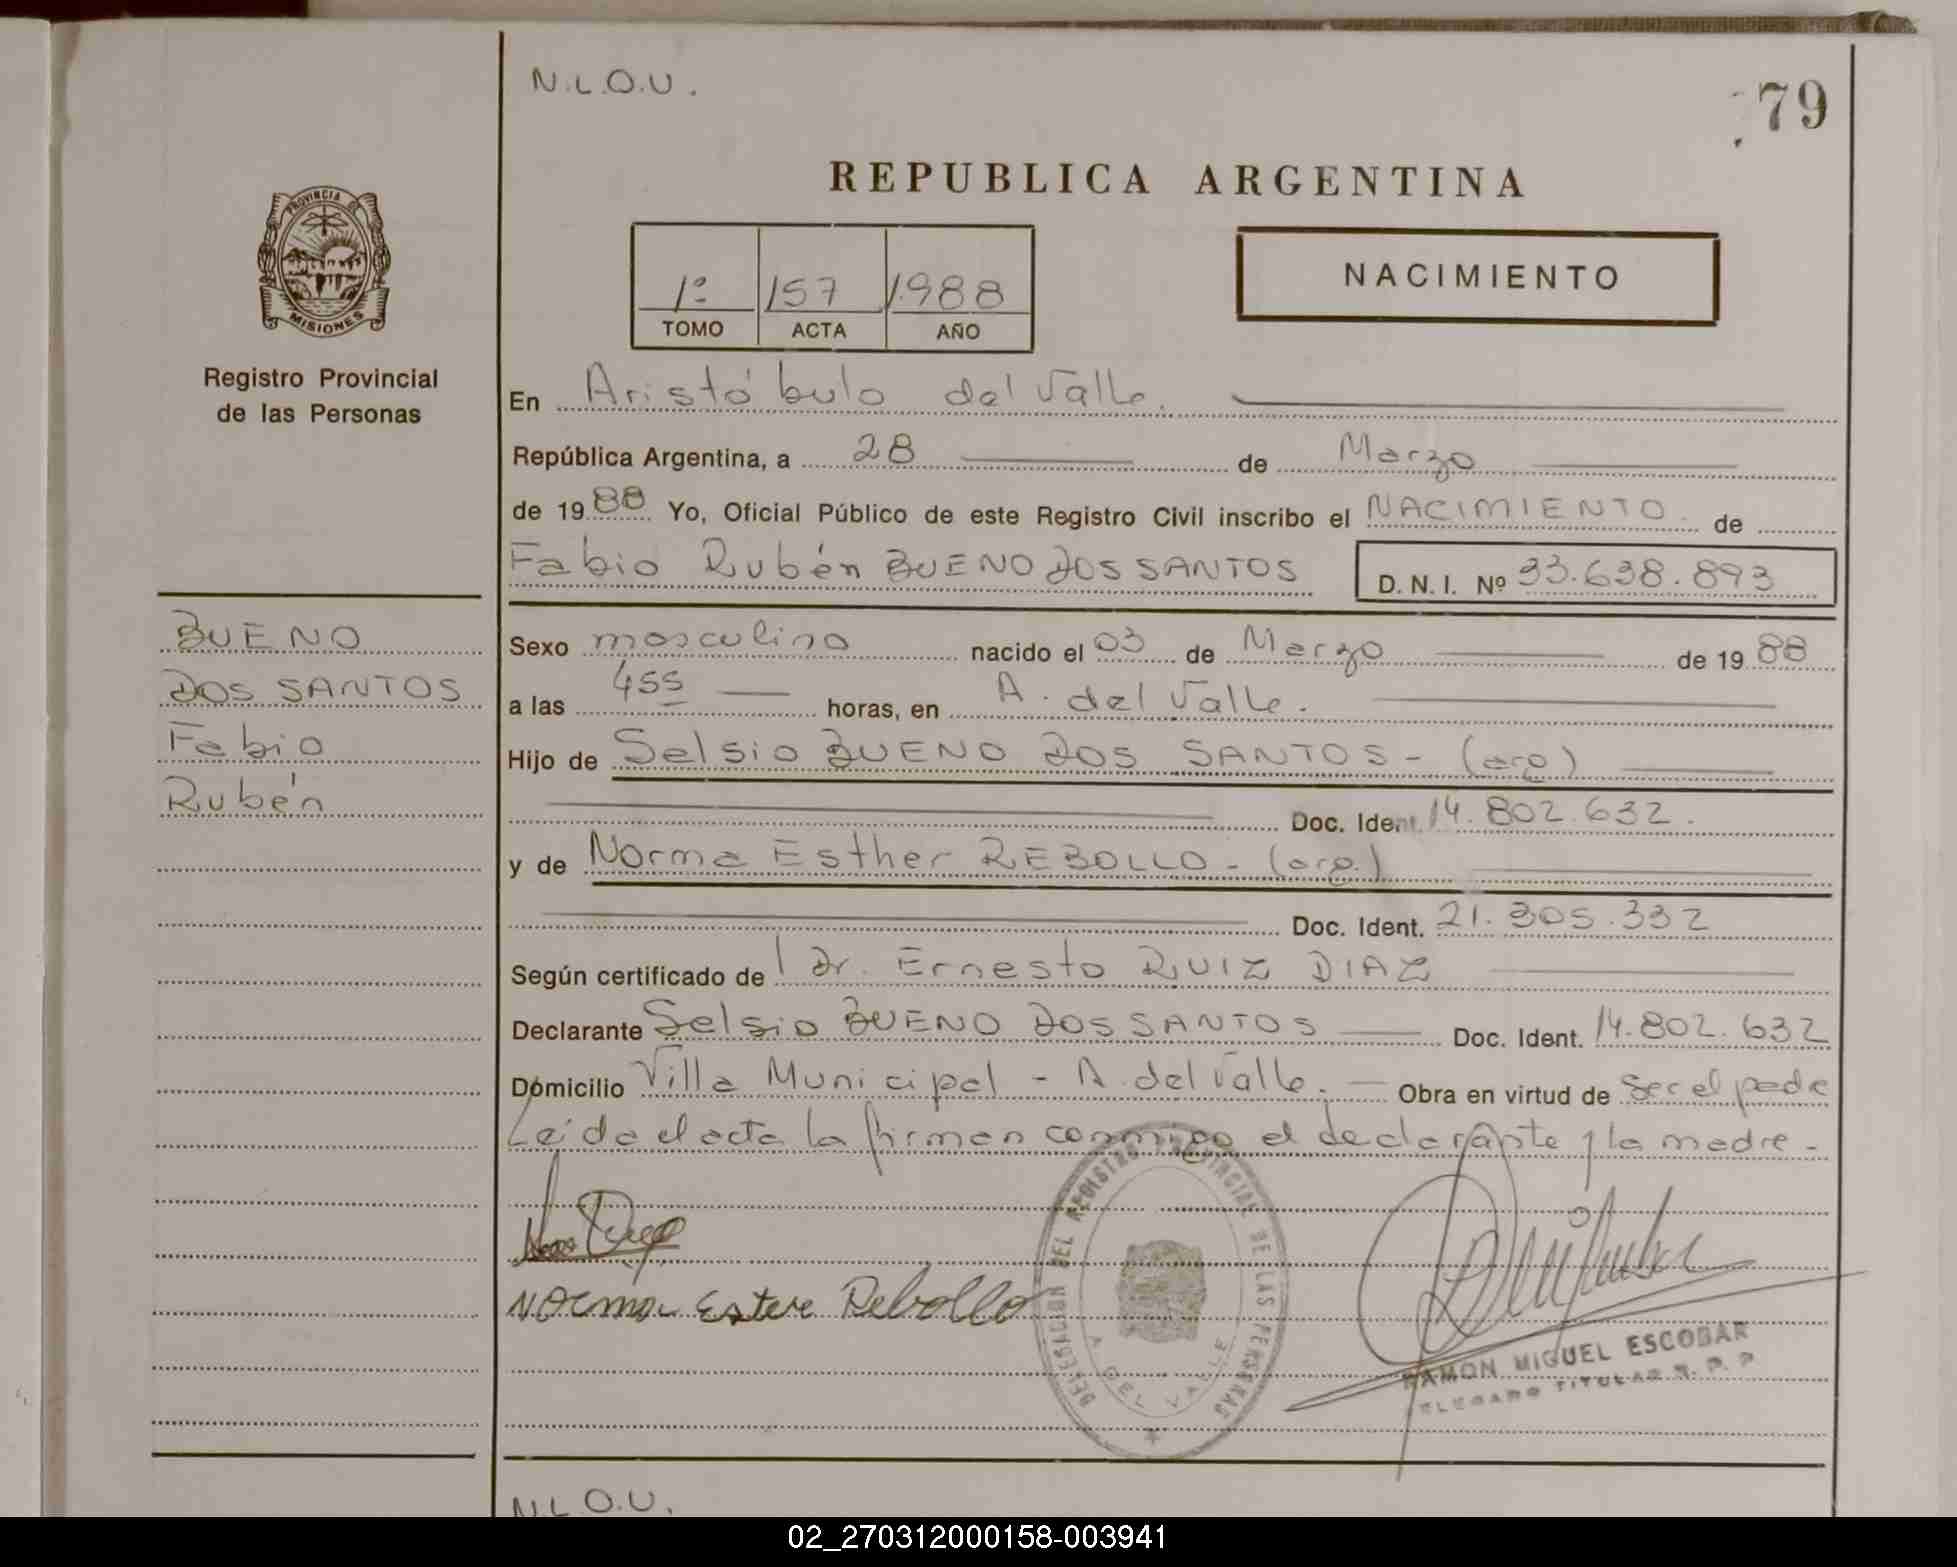 N.L.O.U.
79
PROVINCIA DE
MISIONES
Registro Provincial
de las Personas
REPUBLICA ARGENTINA
1º 157 1.988
TOMO ACTA AÑO
NACIMIENTO
En Aristóbulo del Valle.
República Argentina, a 28 de Marzo
de 1988 Yo, Oficial Público de este Registro Civil inscribo el NACIMIENTO de
Fabio Rubén BUENO DOS SANTOS D.N.I. Nº 33.638.893
BUENO
DOS SANTOS
Fabio
Rubén
Sexo masculino nacido el 03 de Marzo de 1988
a las 455 horas, en A. del Valle.
Hijo de Selsio BUENO DOS SANTOS - (arg)
Doc. Ident. 14.802.632.
y de Norma Esther REBOLLO - (arg.)
Doc. Ident. 21.305.332
Según certificado de l Dr. Ernesto RUIZ DIAZ
Declarante Selsio BUENO DOS SANTOS Doc. Ident. 14.802.632
Domicilio Villa Municipal - A. del Valle. Obra en virtud de ser el padre
Leída el acta la firman conmigo el declarante y la madre -
Norma Estere Rebollo
DELEGACION DEL REGISTRO PROVINCIAL DE LAS PERSONAS
A. DEL VALLE
RAMON MIGUEL ESCOBAR
DELEGADO TITULAR R. P. P.
N.L.O.U.
02_270312000158-003941